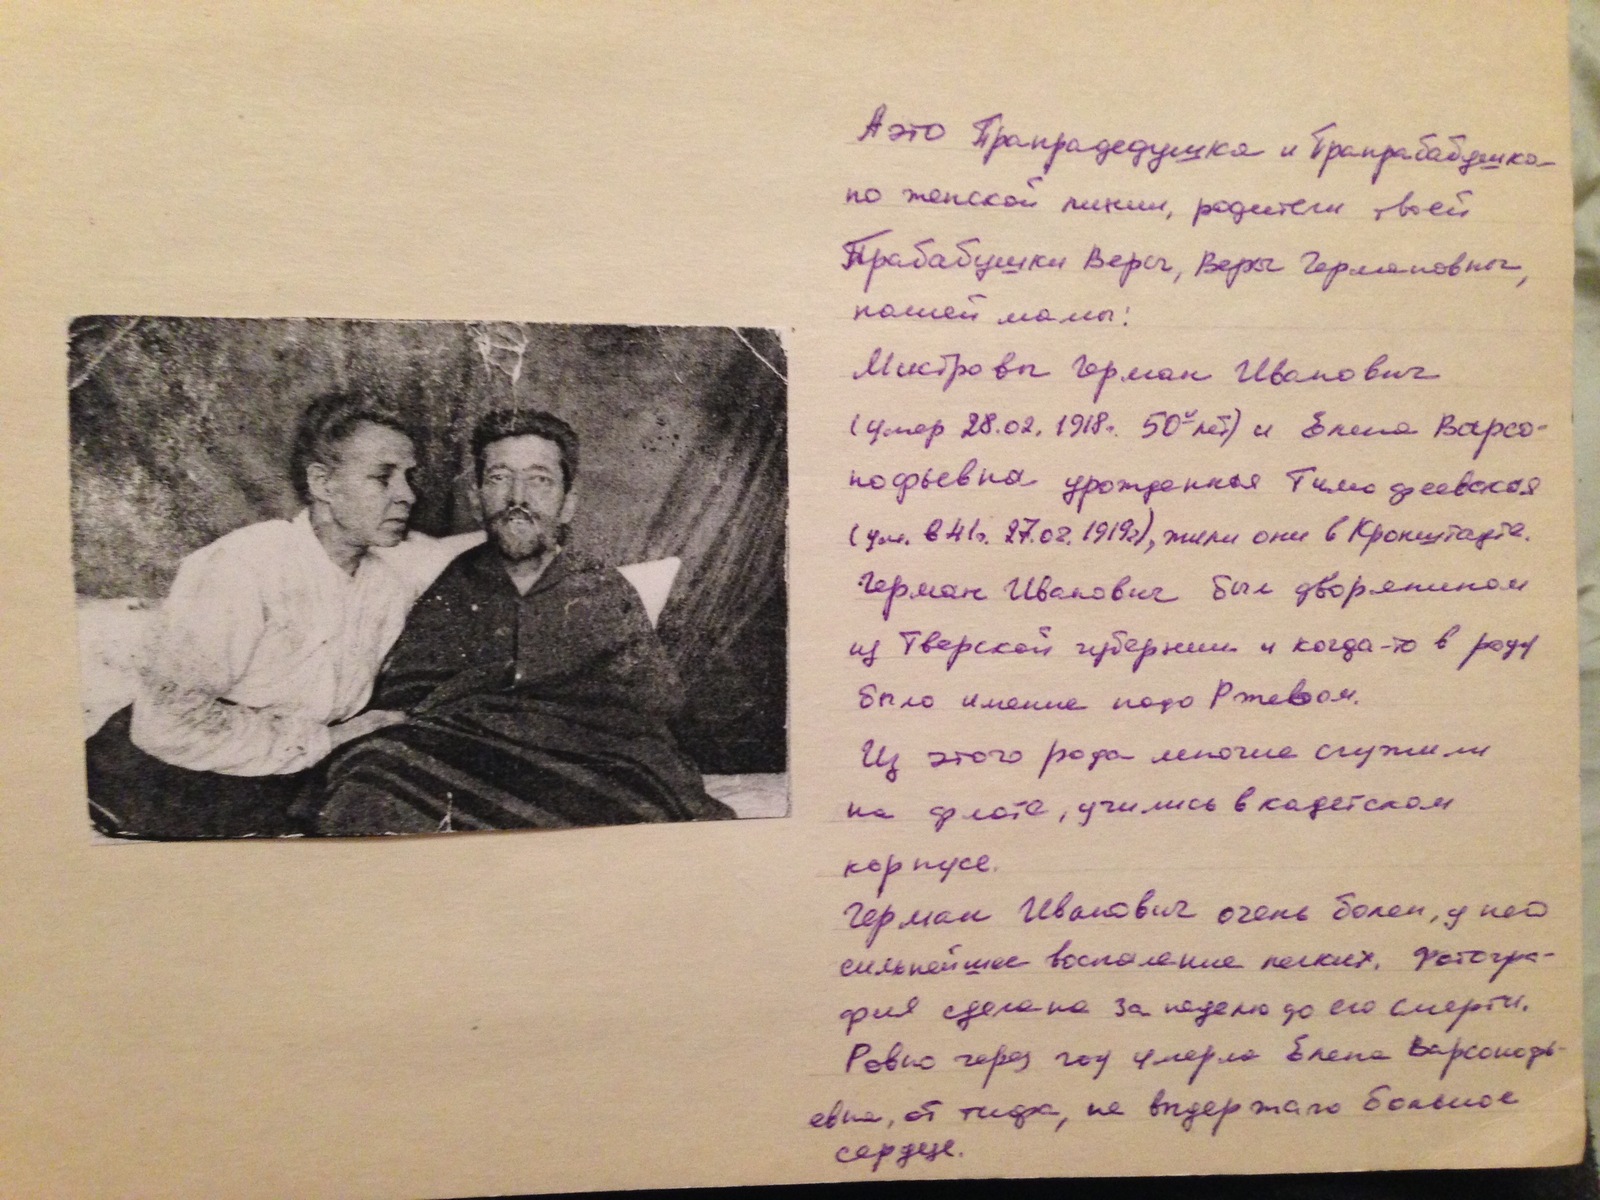 А это Прапрадедушка и Прапрабабушка
по женской линии, родители твоей
Прабабушки Веры, Веры Германовны,
нашей мамы:
Мистровы Герман Иванович
(умер 28.02. 1918г. 50и лет) и Елена Варсо-
нофьевна урожденная Тимофеевская
(ум. в 41г. 27.02. 1919г), жили они в Кронштадте.
Герман Иванович был дворянином
из Тверской губернии и когда-то в роду
было имение подо Ржевом.
Из этого рода многие служили
на флоте, учились в кадетском
корпусе.
Герман Иванович очень болен, у него
сильнейшее воспаление легких. Фотогра-
фия сделана за неделю до его смерти.
Ровно через год умерла Елена Варсонофь-
евна, от тифа, не выдержало больное
сердце.